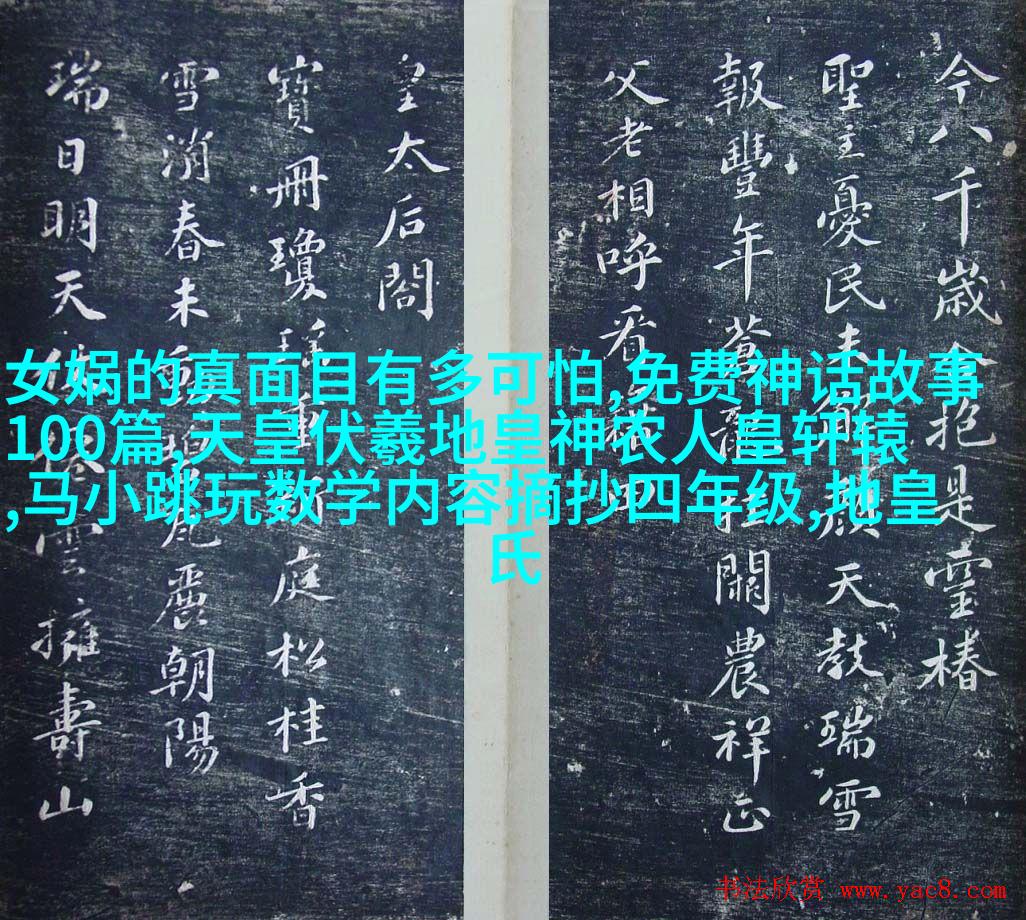 女娲的真面目有多可怕,免费神话故事
100篇,天皇伏羲地皇神农人皇轩辕
,马小跳玩数学内容摘抄四年级,地皇
氏
今八千歳合抱是靈椿
聖主憂民未解顏天教瑞雪
報豐年蒼龍挂闕農祥正
父老相呼看耤田
皇太后閤
寶冊瓊瑤重庭松桂香
雪消春未瓦麗朝陽
瑞日明天仗雲擁壽山
书法欣赏 www.yac8.com